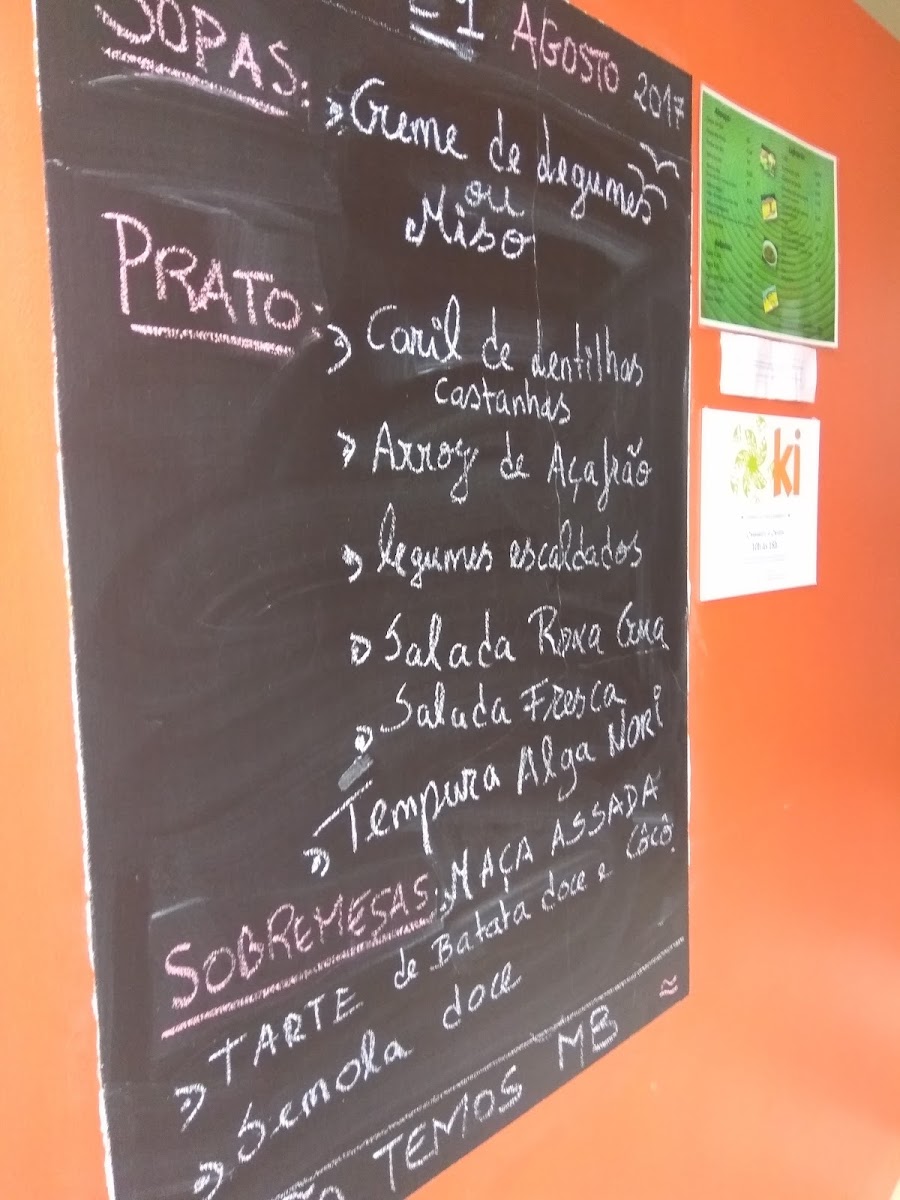 1 AGOSTO 2017
SOPAS:
Creme de Legumes
ou
Miso
PRATO:
Caril de Lentilhas
Castanhas
Arroz de Açafrão
legumes escaldados
Salada Roxa Crua
Salada Fresca
Tempura Alga NORI
SOBREMESAS: MAÇA ASSADA
TARTE de Batata doce e CÔCÔ
Semola doce
TEMOS MB
ki
10h às 16h